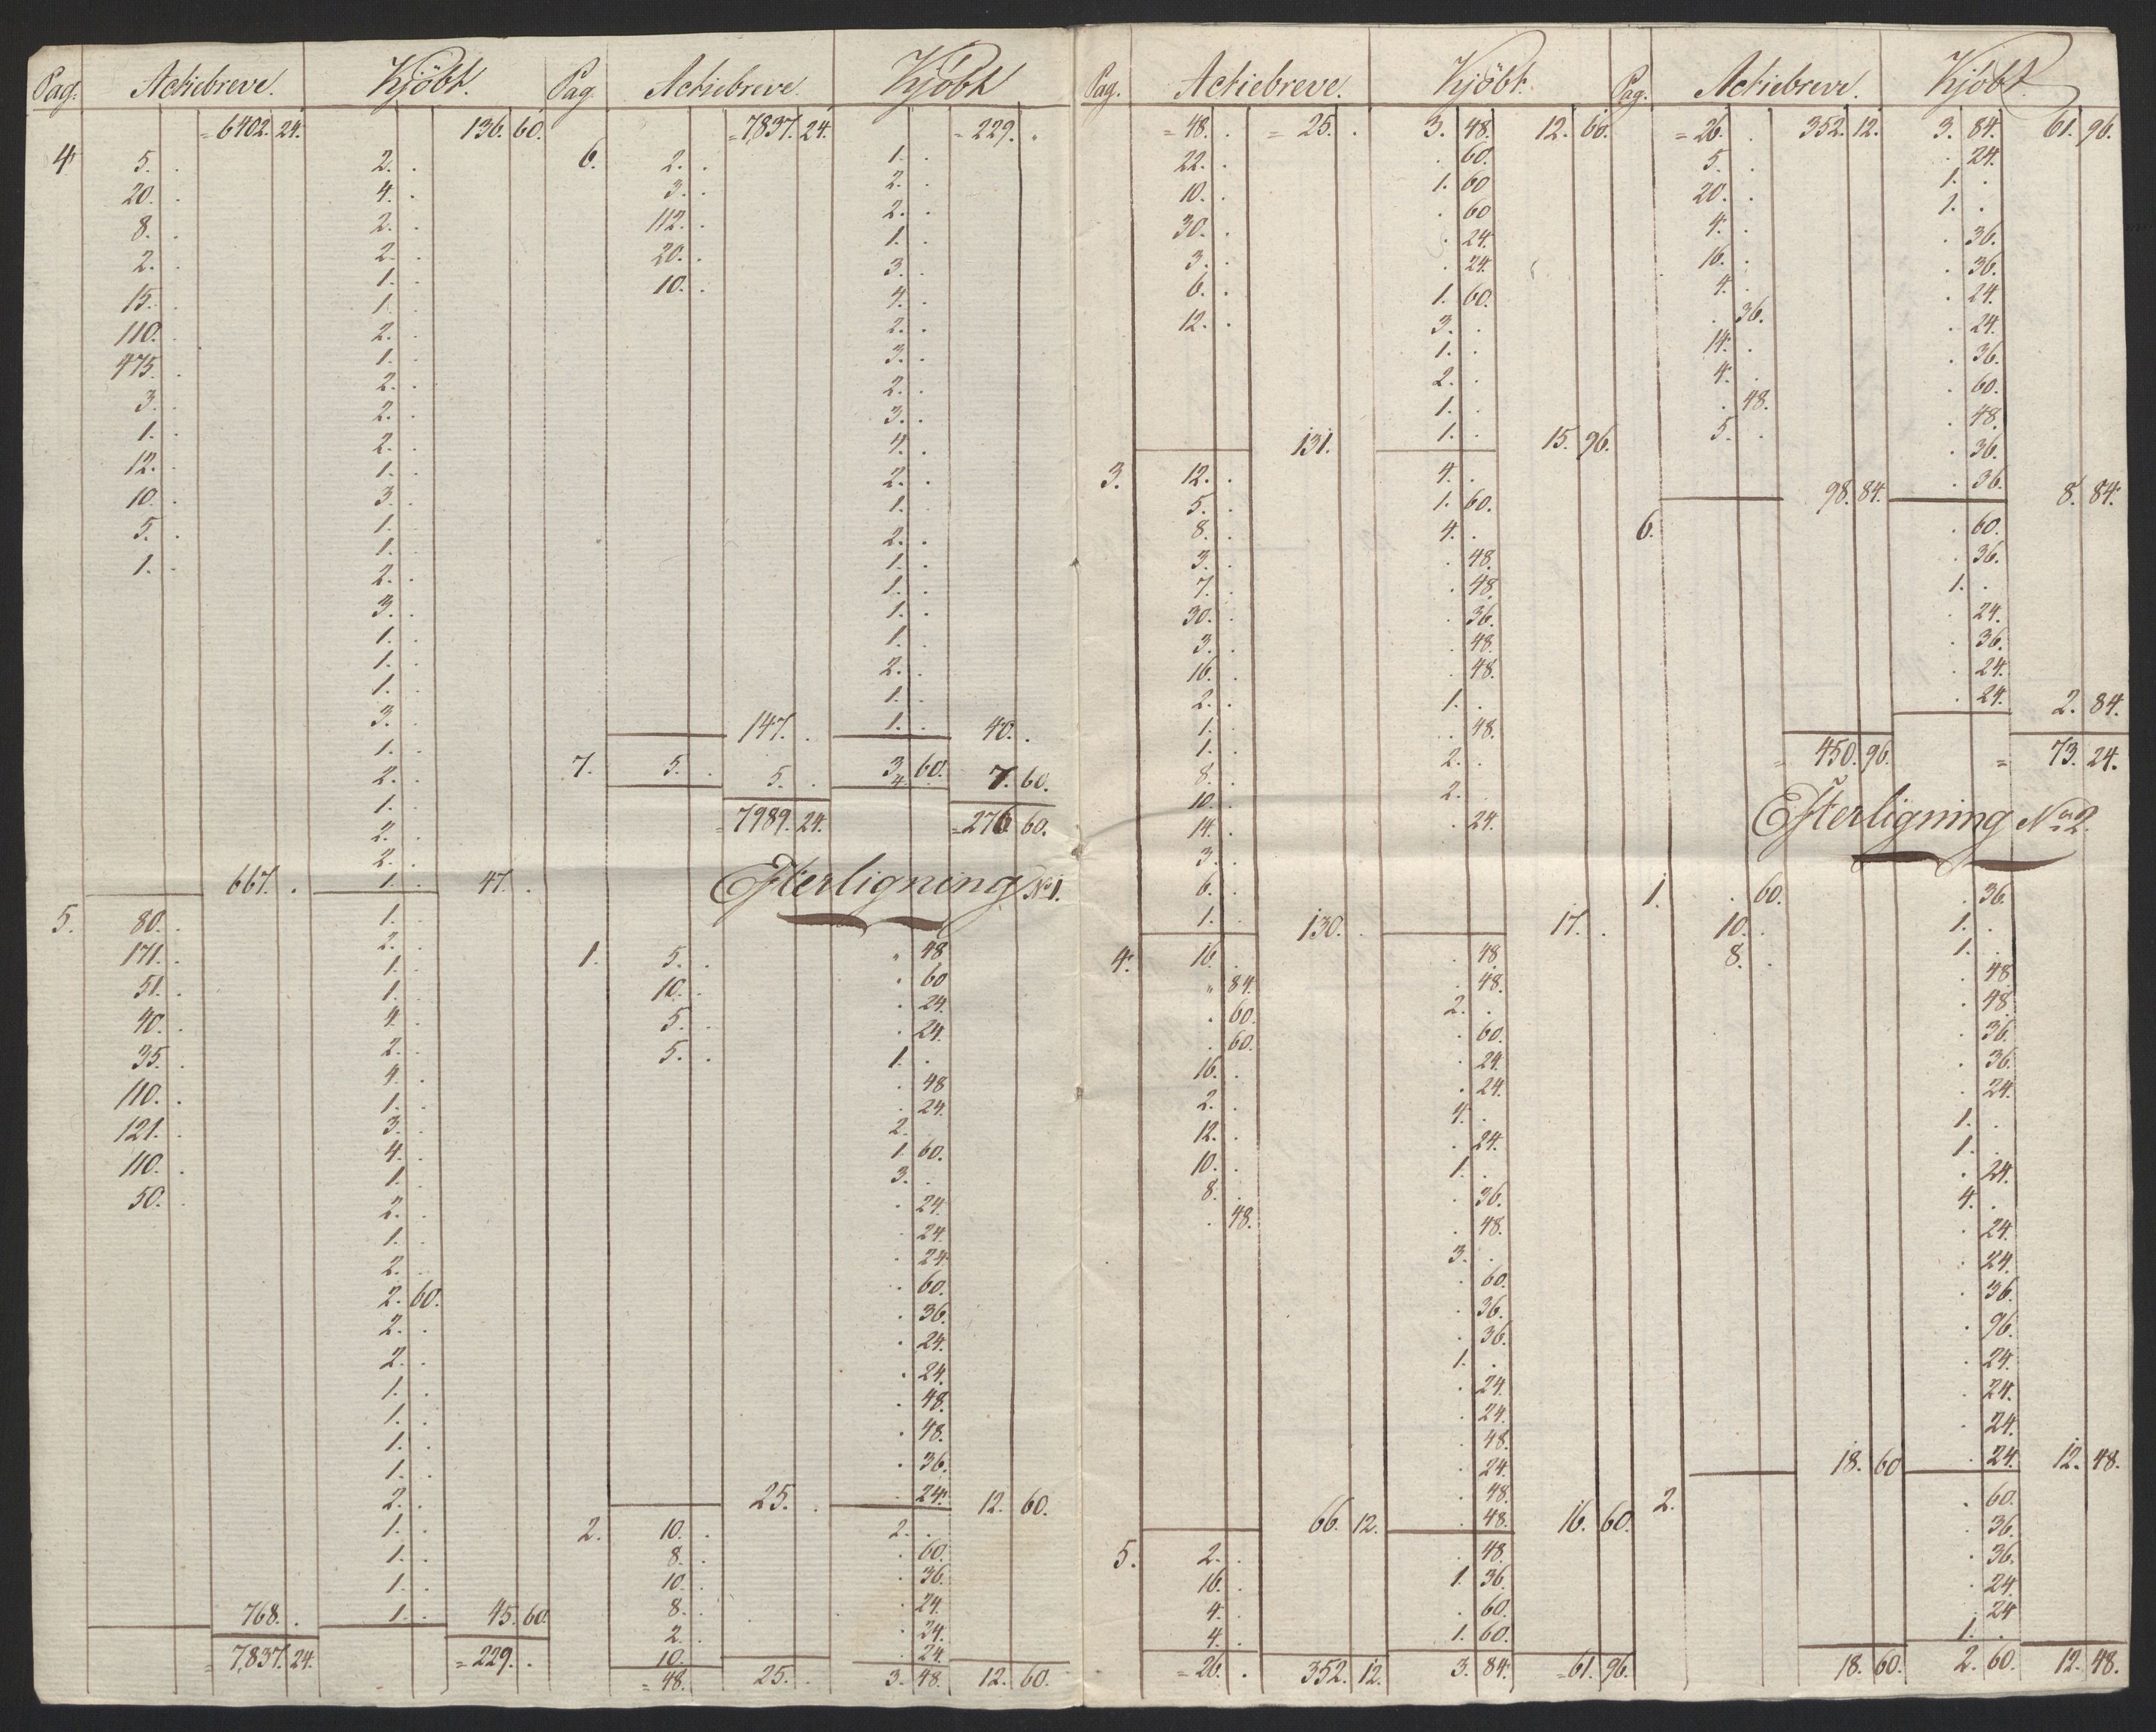 Pag. Actiebreve. Kjöbt.
= 6402. 24. 136. 60.
4. 5. . 2. .
20. . 4. .
8. . 2. .
2. . 2. .
15. . 1. .
110. . 1. .
475. . 2. .
3. . 1. .
1. . 2. .
12. . 2. .
10. . 2. .
5. . 1. .
1. . 3. .
1. .
1. .
2. .
3. .
1. .
1. .
1. .
3. .
1. .
2. .
1. .
2. .
2. .
667. . 1. . 47. .
5. 80. . 1. .
171. . 2. .
51. . 1. .
40. . 1. .
35. . 4. .
110. . 2. .
121. . 4. .
110. . 1. .
50. . 3. .
4. .
1. .
2. .
1. .
2. .
2. 60.
2. .
2. .
1. .
1. .
1. .
1. .
2. .
1. .
1. .
1. .
768. . 1. . 45. 60
= 7,837. 24. = 229. .
Pag. Actiebreve. Kjöbt
= 7,837. 24. = 229. .
6. 2. . 1. .
3. . 2. .
112. . 2. .
20. . 1. .
10. . 3. .
4. .
2. .
3. .
2. .
3. .
4. .
2. .
1. .
2. .
1. .
1. .
1. .
1. .
2. .
1. .
147. . 1. . 40. .
7. 5. . 5. . 3. 60. 7. 60.
4.
= 7989. 24. = 276 60.
Efterligning No 1.
1. 5. . " 48
10. . . 60
5. . . 24.
5. . . 24.
1. .
. 48
. 24.
2. .
1. 60.
3. .
. 24.
. 24.
. 24
. 60.
. 36.
. 24.
. 24.
. 48.
. 48.
. 36.
25. . . 24. 12. 60.
2. 10. . 2. .
8. . . 60.
10. . . 36.
8. . . 24.
2. . . 24.
10. . . 24.
= 48. 25. . 3. 48. 12. 60.
Pag. Actiebreve. Kjöbt.
= 48. . = 25. . 3. 48. 12. 60.
22. . . 60.
10. . 1. 60
30. . . 60
3. . . 24.
6. . . 24.
12. . 1. 60.
3. .
1. .
2. .
1. .
131. 1. . 15. 96.
3. 12. . 4. .
5. . 1. 60.
8. . 4. .
3. . . 48.
7. . . 48.
30. . . 36.
3. . . 48.
16. . . 48.
2. . 1. .
1. . . 48.
1. . 2. .
8. . 2. .
10. . . 24.
14. .
3. .
6. .
1. . 130. . 17. .
4. 16. . . 48
" 84. . 48.
. 60. 2. .
. 60. . 60.
16. . . 24.
2. . . 24.
12. . 4. .
10. . . 24.
8. . 1. .
. 48. . 36.
. 48.
3. .
. 60.
. 36.
. 36.
1. .
. 24.
. 24.
. 48.
. 24.
. 48.
66. 12. . 48. 16. 60.
5. 2. . . 48.
16. . 1. 36.
4. . . 60.
4. . 1. 60.
= 26. . 352. 12. 3. 84. = 61. 96.
Pag. Actiebreve. Kjöbt.
= 26. . 352. 12. 3. 84. 61. 96.
5. . . 24.
20. . 1. .
4. . 1. .
16. . . 36.
4. . . 36.
. 36. . 24.
14. . . 24.
4. . . 36.
. 48. . 60.
5. . . 48.
. 36.
98. 84. . 36. 8. 84.
6. . 60.
. 36.
1. .
. 24.
. 36.
. 24.
. 24. 2. 84.
= 450. 96. = 73. 24.
Efterligning No 2.
1. . 60. . 36.
10. . 1. .
8. . 1. .
. 48
. 48.
. 36.
. 36.
. 24.
1. .
1. .
. 24.
4. .
. 24.
. 24.
. 36.
. 96.
. 24.
. 24.
. 24.
18. 60 . 24. 12. 48.
2. . 60.
. 36.
. 36.
. 24
. 24
1. .
18. 60. 2. 60. 12. 48.